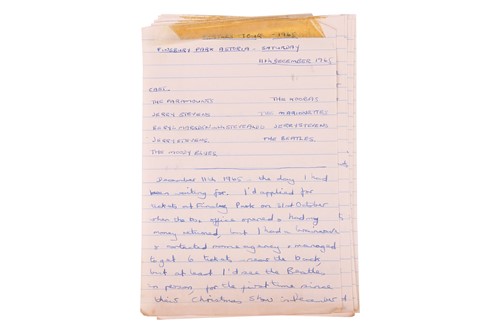 BEATLES TOUR 1965
FINSBURY PARK ASTORIA - SATURDAY
11th DECEMBER 1965
CAST.
THE PARAMOUNTS THE KOOBAS
JERRY STEVENS THE MARIONETTES
BERYL MARSDEN JERRY STEVENS
JERRY STEVENS THE BEATLES
THE MOODY BLUES
December 11th 1965 - the day I had
been waiting for. I'd applied for
tickets at Finsbury Park on 31st October
when the Box office opened & had my
money returned, but I had a
& contacted agency & managed
to get 6 tickets near the back,
but at least I'd see the Beatles
in person, for the first time since
their Christmas Show in December